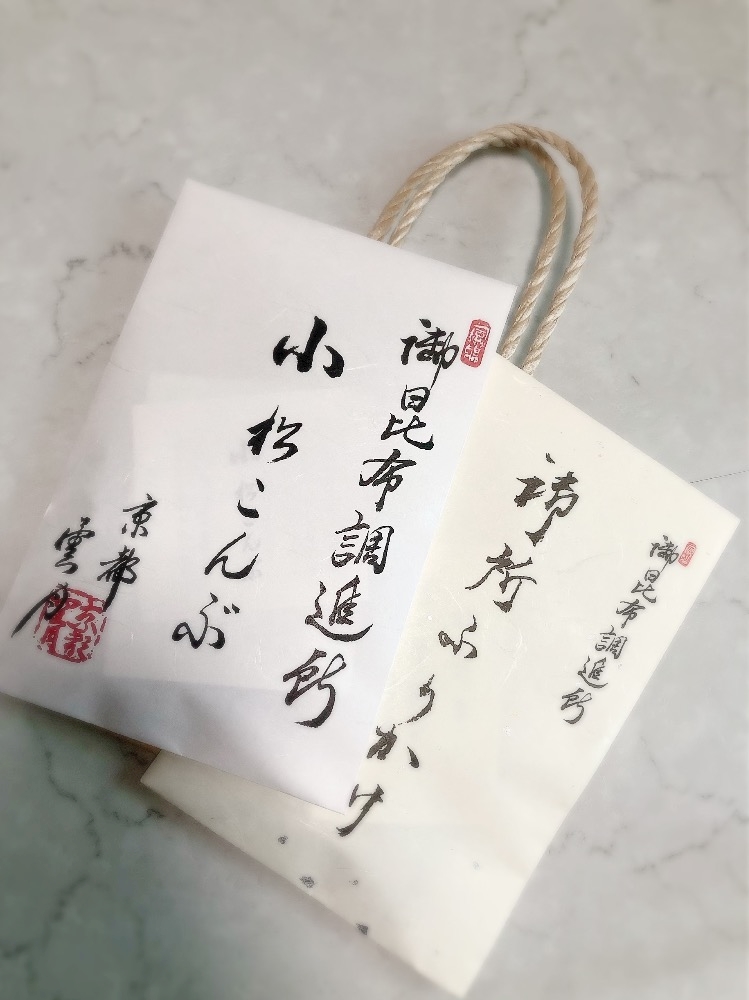 御昆布調進所
小松こんぶ
京都
雲月
御昆布調進所
御所ふりかけ